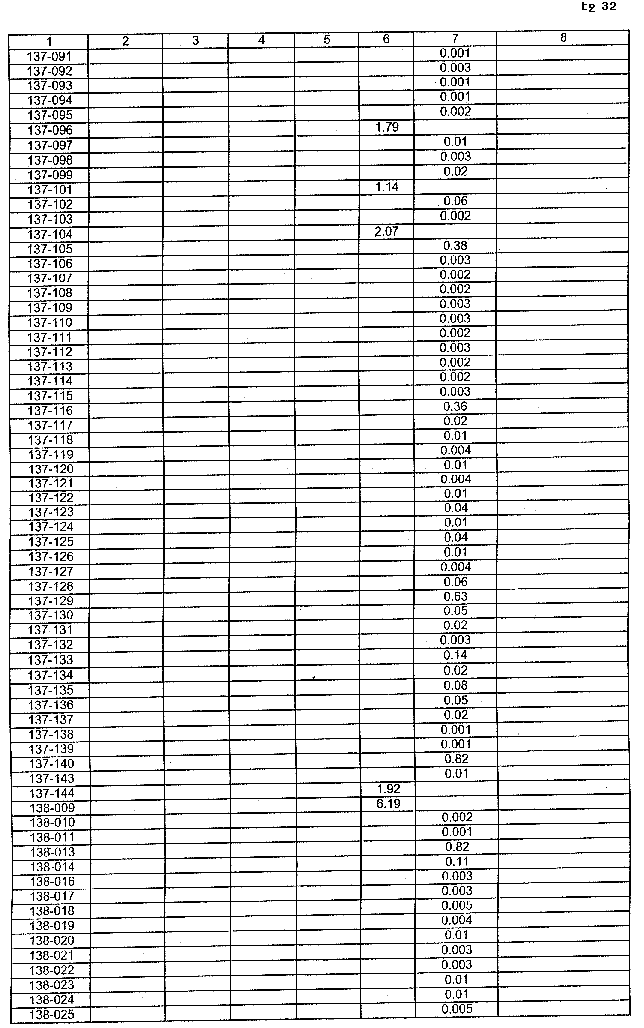 tg 32
1 2 3 4 5 6 7 8
137-091 0.001
137-092 0.003
137-093 0.001
137-094 0.001
137-095 0.002
137-096 1.79
137-097 0.01
137-098 0.003
137-099 0.02
137-101 1.14
137-102 0.06
137-103 0.002
137-104 2.07
137-105 0.38
137-106 0.003
137-107 0.002
137-108 0.002
137-109 0.003
137-110 0.003
137-111 0.002
137-112 0.003
137-113 0.002
137-114 0.002
137-115 0.003
137-116 0.36
137-117 0.02
137-118 0.01
137-119 0.004
137-120 0.01
137-121 0.004
137-122 0.01
137-123 0.04
137-124 0.01
137-125 0.04
137-126 0.01
137-127 0.004
137-128 0.06
137-129 0.63
137-130 0.05
137-131 0.02
137-132 0.003
137-133 0.14
137-134 0.02
137-135 0.08
137-136 0.05
137-137 0.02
137-138 0.001
137-139 0.001
137-140 0.82
137-143 0.01
137-144 1.92
138-009 6.19
138-010 0.002
138-011 0.001
138-013 0.82
138-014 0.11
138-016 0.003
138-017 0.003
138-018 0.005
138-019 0.004
138-020 0.01
138-021 0.003
138-022 0.003
138-023 0.01
138-024 0.01
138-025 0.005